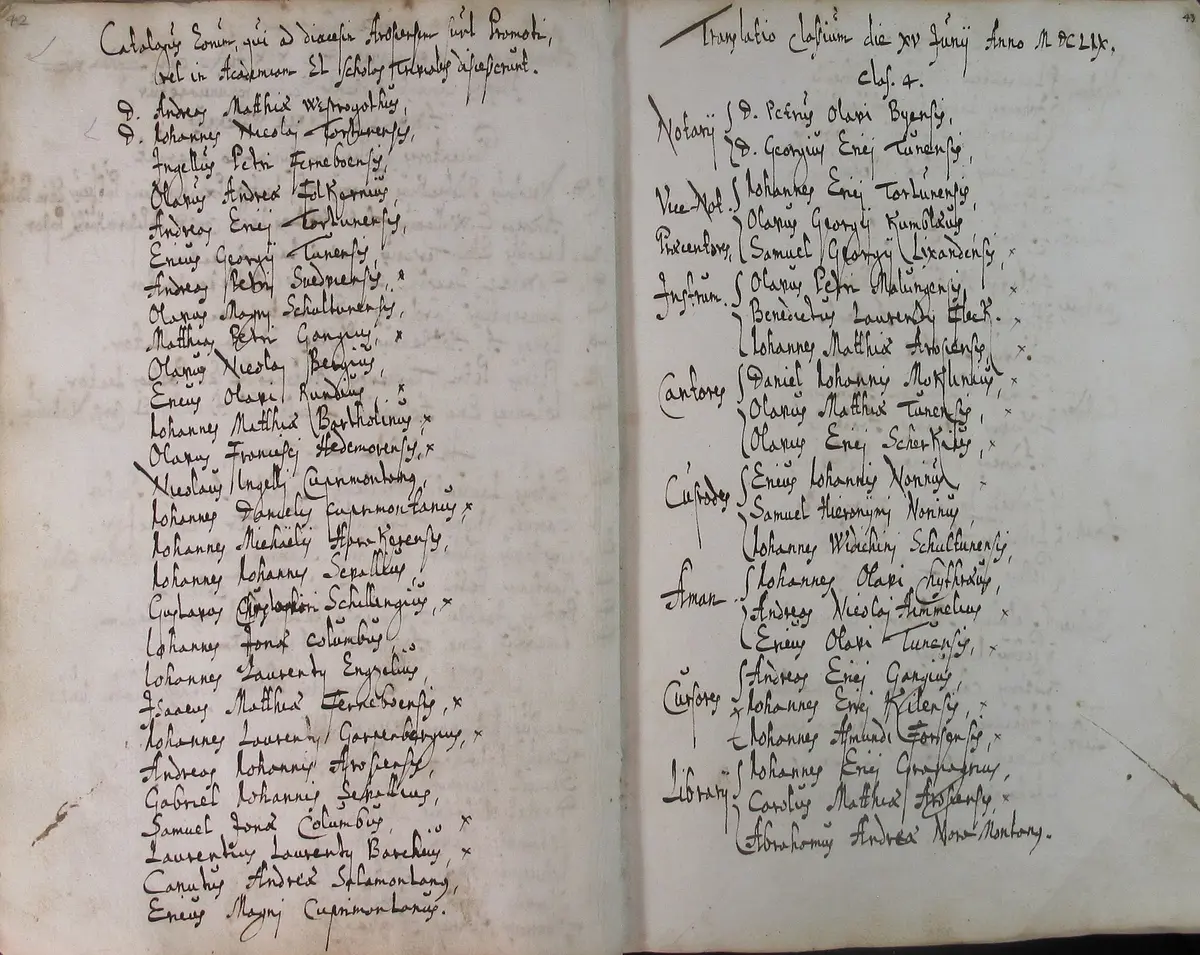 42
Catalogus Eorum, qui ad diaecesin Arosiensem sunt Promoti,
vel in Academiam Et scholas Triviales discesserunt.
D. Andreas Matthiæ Westrogothus,
D. Iohannes Nicolai Torstunensis,
Ingellus Petri Ferneboensis,
Olavus Andreæ Folkernius,
Andreas Erici Torstunensis,
Ericus Georgij Tunensis,
Andreas Petri Suedviensis, x
Olavus Magni Schultunensis,
Matthias Petri Gangius, x
Olavus Nicolai Bergius,
Ericus Olavi Rundius, x
Iohannes Matthiæ Bartholinus, x
Olavus Francisci Hedemorensis, x
Nicolaus Ingelli Cuprimontanus,
Iohannes Danielis Cuprimontanus, x
Iohannes Michaëlis Harakerensis,
Iohannes Iohannis Sevallius,
Gustavus Schillengius, x
Iohannes Jonæ Columbus,
Iohannes Laurentij Engzelius,
Isaacus Matthiæ Ferneboensis, x
Iohannes Laurentij Garnenbergius, x
Andreas Iohannis Arosiensis,
Gabriel Iohannis Sevallius,
Samuel Jonæ Columbus, x
Laurentius Laurentij Barchius, x
Canutus Andreæ Salamontanus,
Ericus Magni Cuprimontanus.
43
Translatio Classium die XV Junij Anno MDCLIX.
Clas. 4.
Notarij D. Petrus Olavi Byensis,
D. Georgius Erici Tunensis,
Vice-Not. Iohannes Erici Torstunensis,
Olavus Georgij Kumblæus,
Præcentores, Samuel Georgij Lixandensis, x
Instrum. Olavus Petri Malungensis, x
Benedictus Laurentij Fleck. x
Iohannes Matthiæ Arosiensis, x
Cantores Daniel Iohannis Moklinnius, x
Olavus Matthiæ Tunensis, x
Olavus Erici Scherkius, x
Custodes Ericus Iohannis Noriius x
Samuel Hieronymi Noriius,
Iohannes Widichini Schultunensis,
Aman. Iohannes Olavi Chythræus,
Andreas Nicolai Himmelius x
Ericus Olavi Tunensis, x
Cursores Andreas Erici Gangius,
Iohannes Erici Kilensis, x
Iohannes Amundi Forssensis, x
Librarij Iohannes Erici Gravagrius,
Carolus Matthiæ Arosiensis x
Abrahamus Andreæ Nora-Montanus.